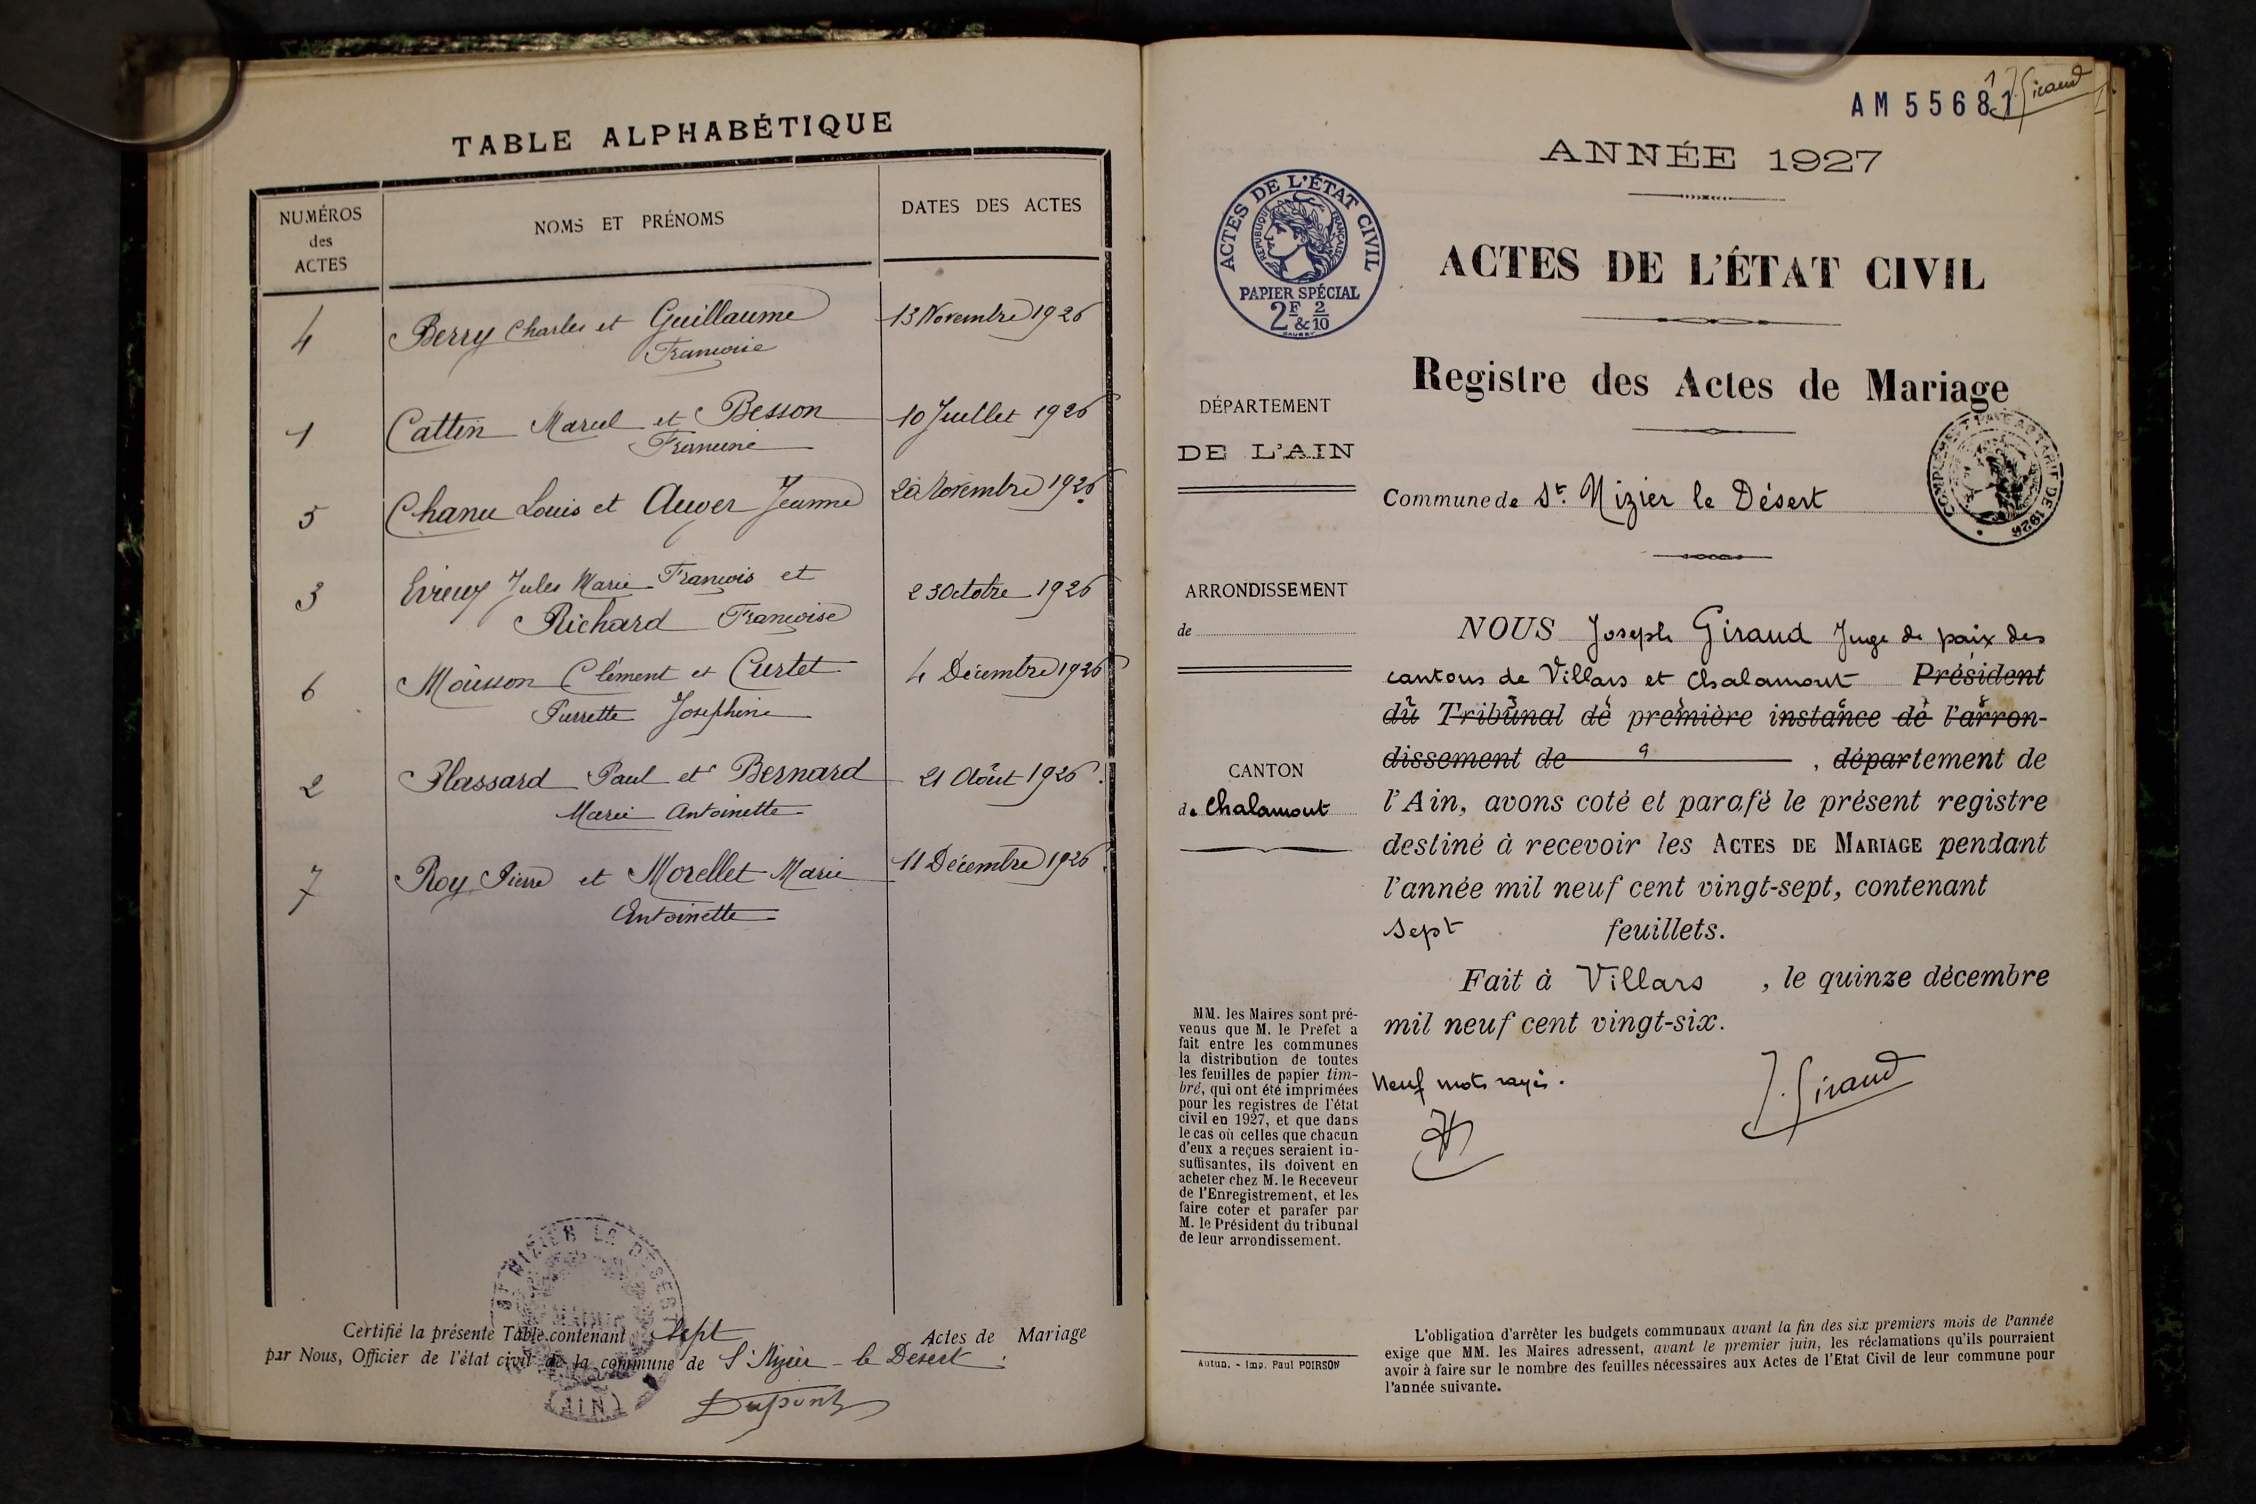 TABLE ALPHABÉTIQUE
NUMÉROS
des
ACTES
NOMS ET PRÉNOMS
DATES DES ACTES
4
Berry Charles et Guillaume
Françoise
13 Novembre 1926
1
Cattin Marcel et Besson
Francine
10 Juillet 1926
5
Chanu Louis et Auver Jeanne
20 Novembre 1926
3
Evieux Jules Marie François et
Richard Françoise
23 Octobre 1926
6
Moisson Clément et Curtet
Pierrette Joséphine
4 Décembre 1926
2
Plassard Paul et Bernard
Marie Antoinette
21 Août 1926
7
Roy Pierre et Morellet Marie
Antoinette
11 Décembre 1926
ST NIZIER LE DESERT
MAIRIE
(AIN)
Certifié la présente Table contenant Sept Actes de Mariage
par Nous, Officier de l'état civil de la commune de St Nizier le Désert
Dupont
AM 55681
1 J. Giraud
ANNÉE 1927
ACTES DE L'ÉTAT CIVIL
RÉPUBLIQUE FRANÇAISE
PAPIER SPÉCIAL
2F & 2/10
ACTES DE L'ÉTAT CIVIL
Registre des Actes de Mariage
DÉPARTEMENT
DE L'AIN
Commune de St. Nizier le Désert
COMPLÉMENT TARIF DE 1926
ARRONDISSEMENT
de
CANTON
de Chalamont
NOUS Joseph Giraud Juge de paix des
cantons de Villars et Chalamont Président
du Tribunal de première instance de l'arron-
dissement de , département de
l'Ain, avons coté et parafé le présent registre
destiné à recevoir les ACTES DE MARIAGE pendant
l'année mil neuf cent vingt-sept, contenant
sept feuillets.
Fait à Villars , le quinze décembre
mil neuf cent vingt-six.
Neuf mots rayés.
J. Giraud
MM. les Maires sont pré-
venus que M. le Préfet a
fait entre les communes
la distribution de toutes
les feuilles de papier tim-
bré, qui ont été imprimées
pour les registres de l'état
civil en 1927, et que dans
le cas où celles que chacun
d'eux a reçues seraient in-
suffisantes, ils doivent en
acheter chez M. le Receveur
de l'Enregistrement, et les
faire coter et parafer par
M. le Président du tribunal
de leur arrondissement.
Autun. - Imp. Paul POIRSON
L'obligation d'arrêter les budgets communaux avant la fin des six premiers mois de l'année
exige que MM. les Maires adressent, avant le premier juin, les réclamations qu'ils pourraient
avoir à faire sur le nombre des feuilles nécessaires aux Actes de l'Etat Civil de leur commune pour
l'année suivante.